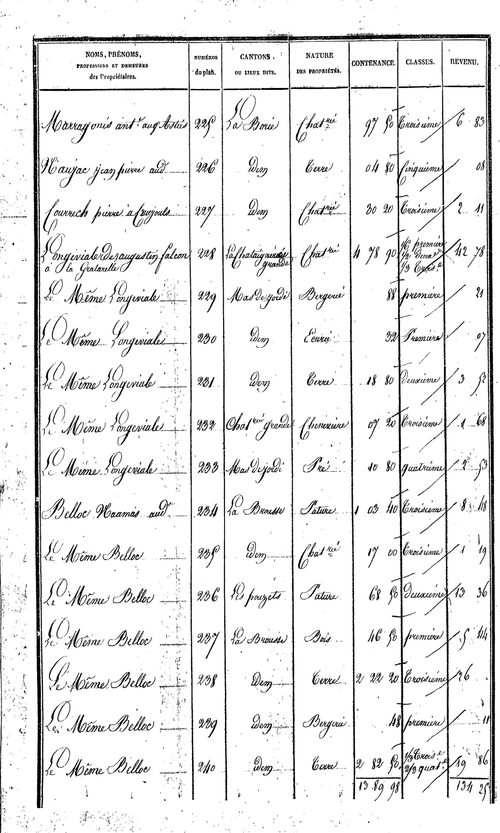 NOMS, PRÉNOMS, PROFESSIONS ET DEMEURES des Propriétaires. NUMÉROS du plan. CANTONS OU LIEUX DITS. NATURE DES PROPRIÉTÉS. CONTENANCE. CLASSES. REVENU.
Marragonis ant.e aug. 225 La Borie Chat.ré 97 50 Troisieme 6 83
Naujac jean pierre aud. 226 idem Terre 04 80 Cinquieme 08
Courrech pierre a 227 idem Chat.ré 30 20 Troisieme 2 11
Longeviale augustin 228 La Chataigneraie grande Chat.ré 4 78 90 première 42 78
à la
Le Même Longeviale 229 Mas de jordi Bergerie 88 première 21
Le Même Longeviale 230 idem Ecurie 32 Première 07
Le Même Longeviale 231 idem Terre 18 80 Deuxième 3 52
Le Même Longeviale 232 Chat.ré grande Cheneviere 07 20 Troisieme 1 68
Le Même Longeviale 233 Mas de jordi Pré 10 80 quatrieme 2 53
Belloc aud. 234 La Brousse Pature 1 03 40 Troisieme 8 48
Le Même Belloc 235 idem Chat.ré 17 00 Troisieme 1 19
Le Même Belloc 236 Les pouzéts Pature 68 50 deuxième 13 36
Le Même Belloc 237 La Brousse Bois 46 50 première 5 44
Le Même Belloc 238 idem Terre 2 22 20 Troisieme 26
Le Même Belloc 239 idem Bergerie 48 première 11
Le Même Belloc 240 idem Terre 2 82 50 1/3 Trois.e 2/3 quat.e 19 86
13 89 98 134 25